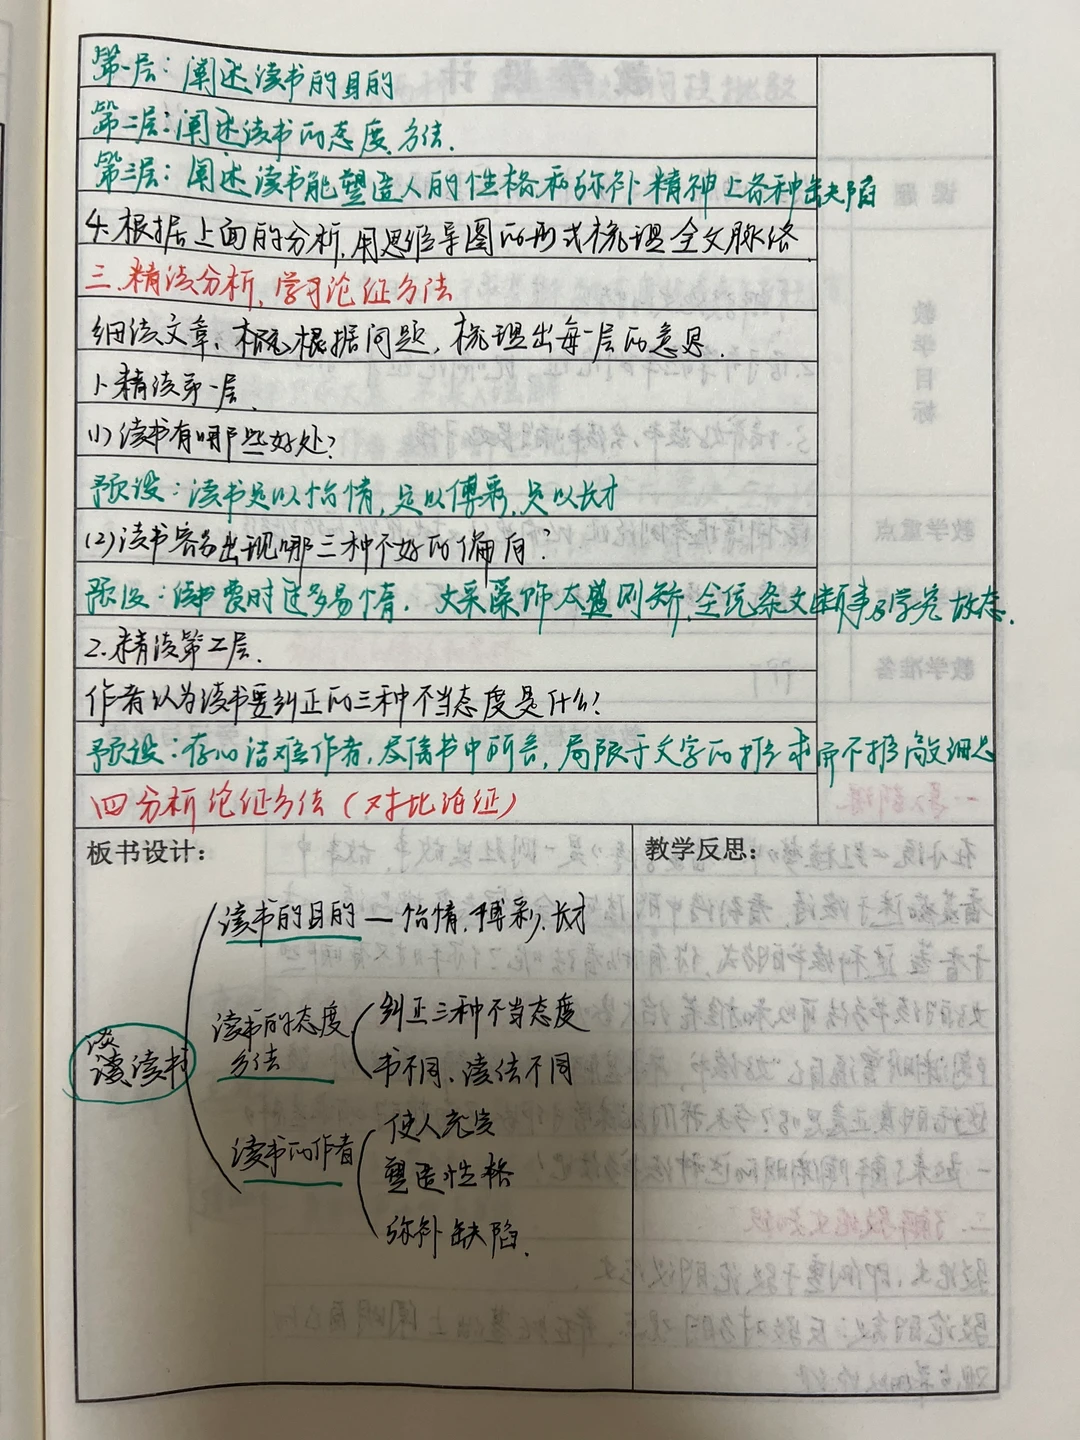 第一层：阐述读书的目的
第二层：阐述读书的态度、方法.
第三层：阐述读书能塑造人的性格和弥补精神上各种缺陷
4.根据上面的分析,用思维导图的形式梳理全文脉络.
三.精读分析,学习论证方法
细读文章、根据问题,梳理出每一层的意思.
1.精读第一层.
(1)读书有哪些好处?
预设：读书足以怡情,足以傅彩,足以长才
(2)读书容易出现哪三种不好的偏向?
预设：读书费时过多易惰. 文采藻饰太盛则矫.全凭条文断事乃学究故态.
2.精读第二层.
作者认为读书要纠正的三种不当态度是什么?
预设：存心诘难作者,尽信书中所言,局限于文字的推求而不推敲细思
四 分析论证方法(对比论证)
板书设计：
教学反思：
读书的目的 — 怡情.傅彩.长才
读书的态度、方法
纠正三种不当态度
书不同、读法不同
谈读书
读书的作者
使人充实
塑造性格
弥补缺陷.